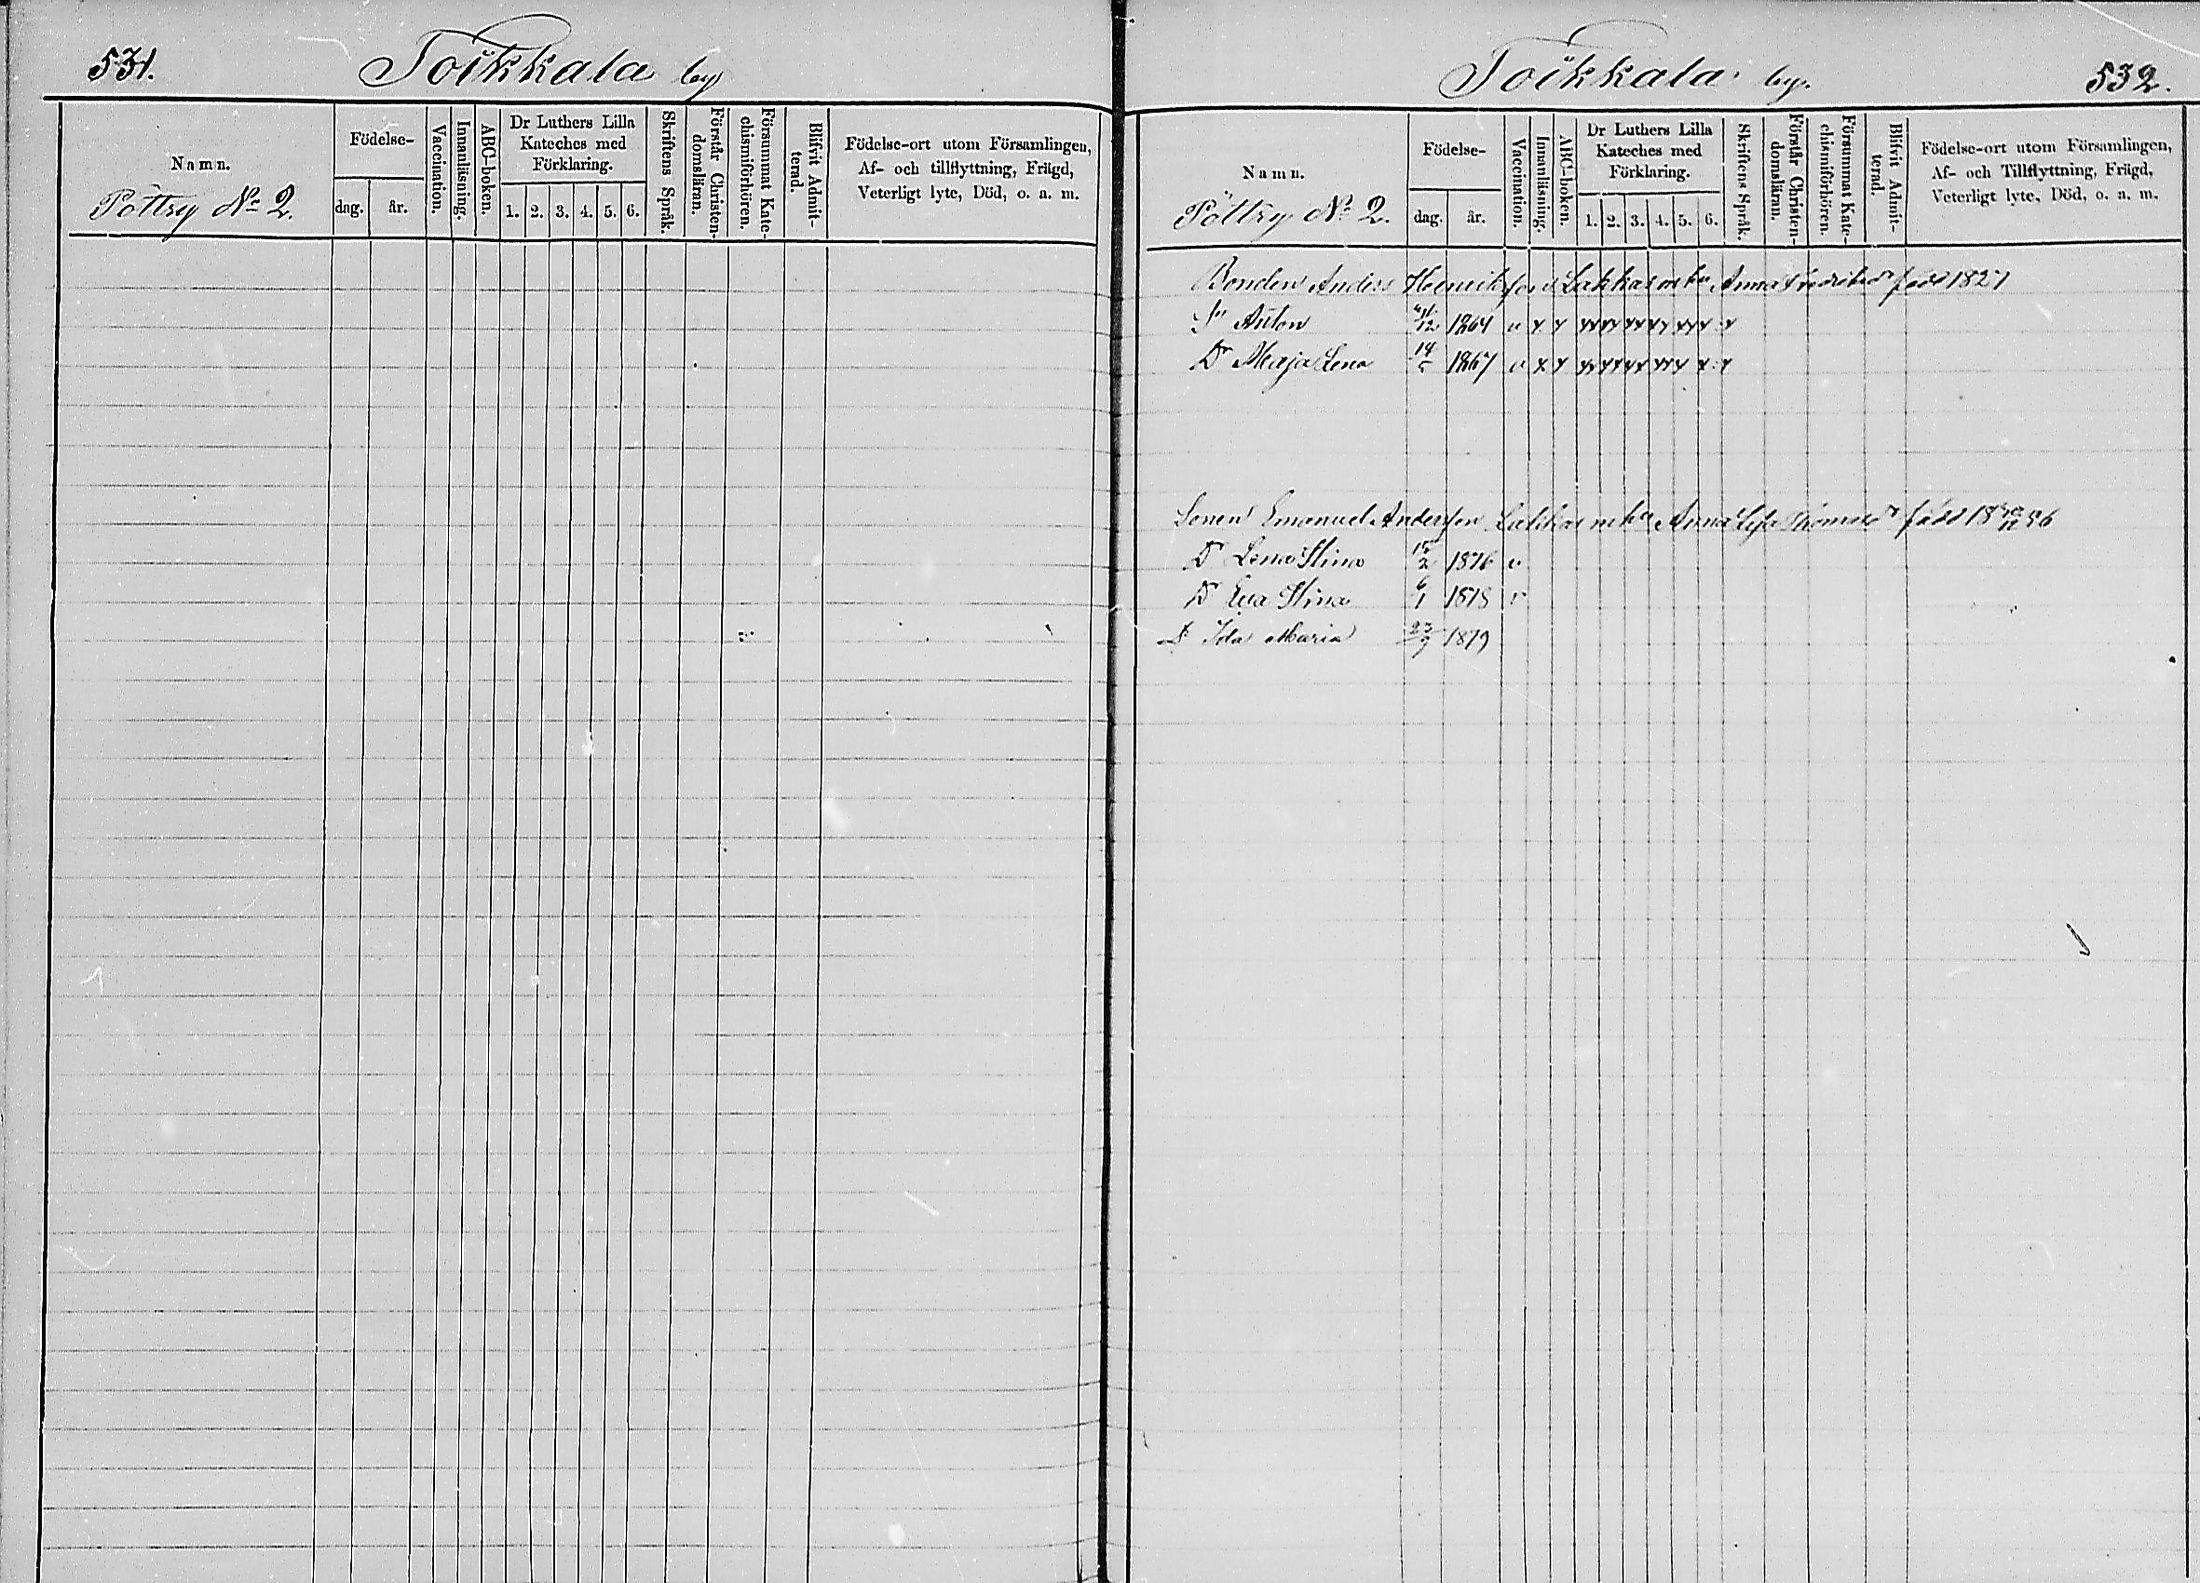 531. Toikkala by
Namn.
Pöttry No 2.
Födelse-
dag. år.
Vaccination.
Innanläsning.
ABC-boken.
Dr Luthers Lilla
Kateches med
Förklaring.
1. 2. 3. 4. 5. 6.
Skriftens Språk.
Förstår Christen-
domsläran.
Försummat Kate-
chismiförhören.
Blifvit Admit-
terad.
Födelse-ort utom Församlingen,
Af- och tillflyttning, Frägd,
Veterligt lyte, Död, o. a. m.
Toikkala by. 532.
Namn.
Pöttry No 2.
Födelse-
dag. år.
Vaccination.
Innanläsning.
ABC-boken.
Dr Luthers Lilla
Kateches med
Förklaring.
1. 2. 3. 4. 5. 6.
Skriftens Språk.
Förstår Christen-
domsläran.
Försummat Kate-
chismiförhören.
Blifvit Admit-
terad.
Födelse-ort utom Församlingen,
Af- och Tillflyttning, Frägd,
Veterligt lyte, Död, o. a. m.
Bonden Anders Henriksson Lakkas Anna född 1827
Sn Anton 1864 v x x
Dr Maja Lena 1867 v x x
Sonen Emanuel Andersson Lakkas Anna Lisa Thomasdr född 18 56
Dr Lena Stina 15/2 1876 v
Dr Eva Stina 6/1 1878 v
D. Ida Maria 23/9 1879